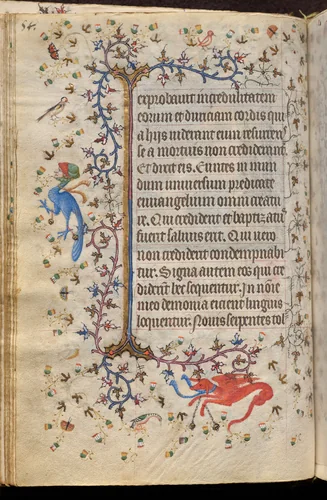 exprobauit incredulitatem
eorum et duriciam cordis qui
a hijs uiderant eum resurrex
se a mortuis non crediderunt
Et dixit eis. Euntes in mun
dum uniuersum predicate
euuangelium omni creatu
re. Qui crediderit et baptizatus
fuerit saluus erit. Qui uero
non crediderit condempnabi
tur. Signa autem eos qui cre
diderint hec sequentur. In noīe
meo demonia eicient linguis
loquentur. Nouis serpentes tol